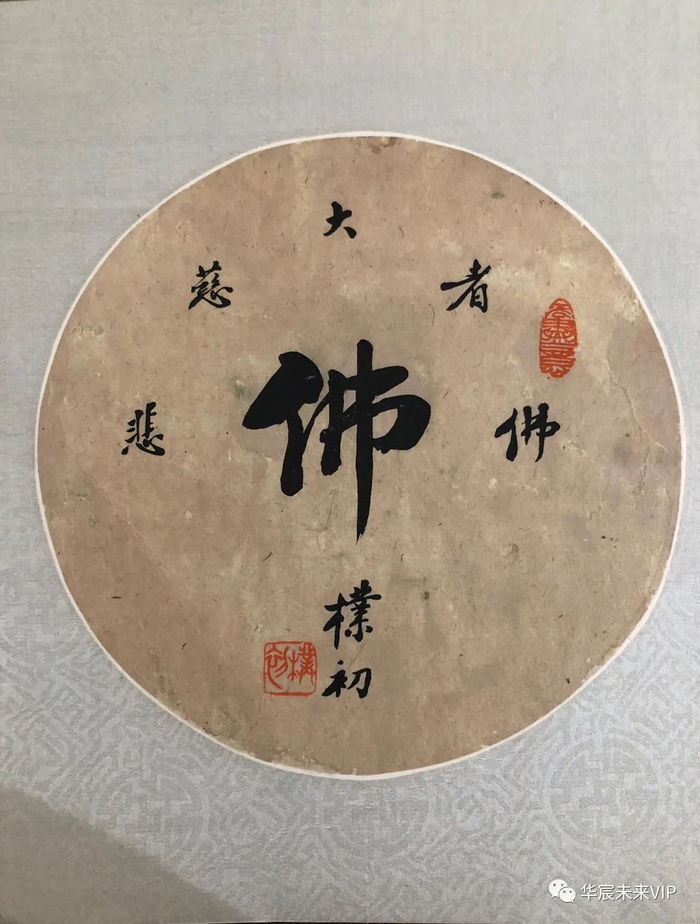 佛者大慈悲
佛
樸初
樸初
华宸未来VIP